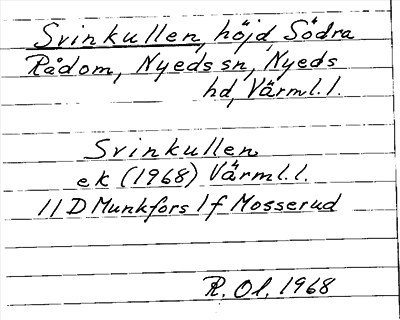 Svinkullen, höjd, Södra
Rådom, Nyeds sn, Nyeds
hd, Värml. l.
Svinkullen
ek (1968) Värml. l.
11 D Munkfors 1f Mosserud
R. Ol. 1968